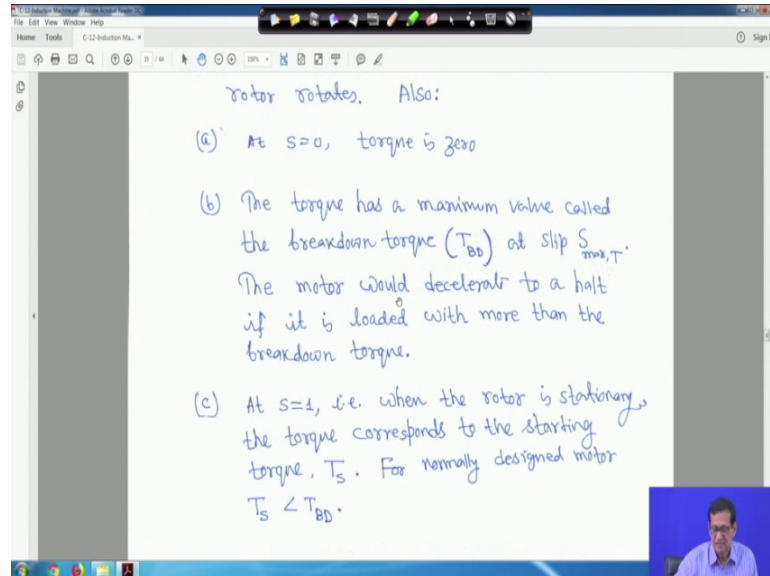 C-12-Induction Machine.pdf - Adobe Acrobat Reader DC
File Edit View Window Help
Home Tools C-12-Induction Ma... ×
Sign
rotor rotates. Also:
(a) At S=0, torque is zero
(b) The torque has a maximum value called
the breakdown torque (T_BD) at slip S_max,T.
The motor would decelerat to a halt
if it is loaded with more than the
breakdown torque.
(c) At S=1, i.e. when the rotor is stationary,
the torque corresponds to the starting
torque, T_S. For normally designed motor
T_S < T_BD.